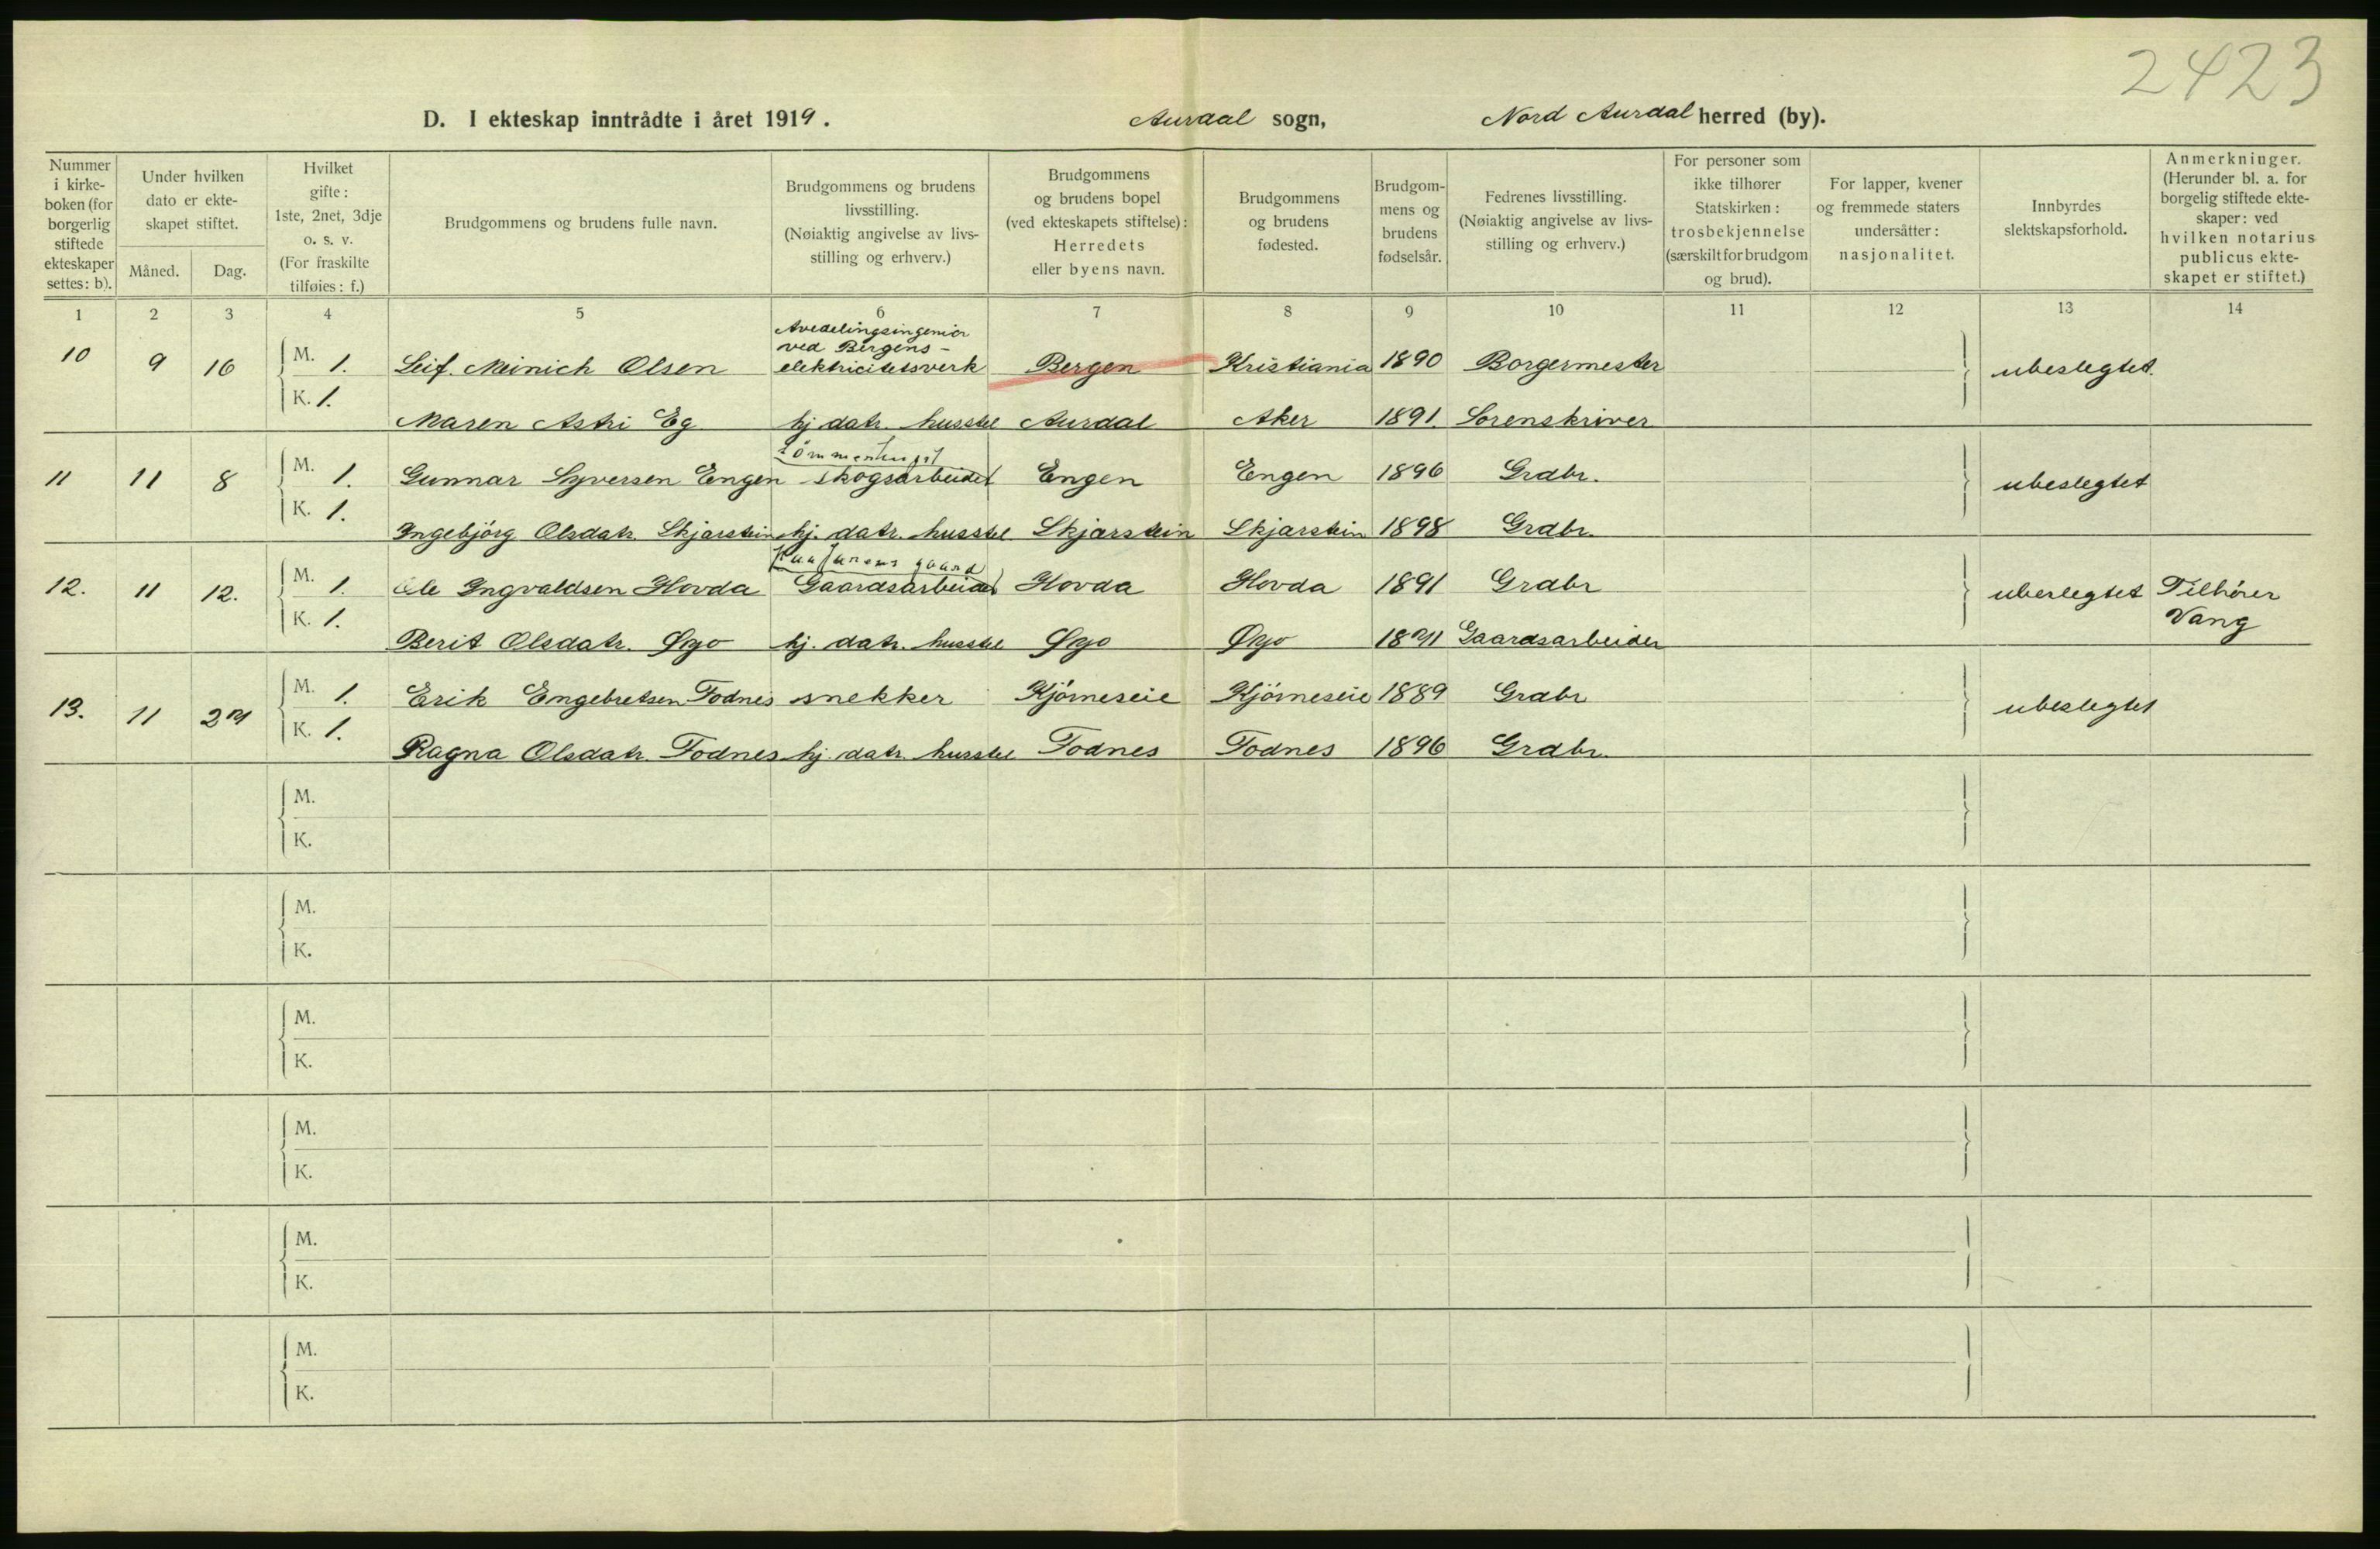 2423
D. I ekteskap inntrådte i året 1919. Aurdal sogn, Nord Aurdal herred (by).
Nummer i kirkeboken (for borgerlig stiftede ekteskaper settes: b).
Under hvilken dato er ekteskapet stiftet.
Måned. Dag.
Hvilket gifte: 1ste, 2net, 3dje o. s. v. (For fraskilte tilføies: f.)
Brudgommens og brudens fulle navn.
Brudgommens og brudens livsstilling. (Nøiaktig angivelse av livsstilling og erhverv.)
Brudgommens og brudens bopel (ved ekteskapets stiftelse): Herredets eller byens navn.
Brudgommens og brudens fødested.
Brudgommens og brudens fødselsår.
Fedrenes livsstilling. (Nøiaktig angivelse av livsstilling og erhverv.)
For personer som ikke tilhører Statskirken: trosbekjennelse (særskilt for brudgom og brud).
For lapper, kvener og fremmede staters undersåtter: nasjonalitet.
Innbyrdes slektskapsforhold.
Anmerkninger. (Herunder bl. a. for borgelig stiftede ekteskaper: ved hvilken notarius publicus ekteskapet er stiftet.)
1 2 3 4 5 6 7 8 9 10 11 12 13 14
10 9 16 M. 1. Leif. Meinich Olsen Avedelingsingeniör ved Bergens- elektricitetsverk Bergen Kristiania 1890 Borgermester ubeslegtet.
K. 1. Maren Astri Eg hj. datr. husstel Aurdal Aker 1891. Sorenskriver
11 11 8 M. 1. Gunnar Syversen Engen tömmerhugst skogsarbeidet Engen Engen 1896 Grdbr. ubeslegtet
K. 1. Ingebjörg Olsdatr. Skjarstein hj. datr. husstel Skjarstein Skjarstein 1898 Grdbr.
12. 11 12. M. 1. Ole Ingvaldsen Hovda Gaardsarbeider Hovda Hovda 1891 Grdbr ubeslegtet Tilhörer Vang
K. 1. Berit Olsdatr. Øgo hj. datr. husstel Øgo Øgo 1891 Gaardsarbeider
13. 11 27 M. 1. Erik Engebretsen Todnes snekker Kjörneseie Kjörneseie 1889 Grdbr ubeslegtet
K. 1. Ragna Olsdatr. Todnes hj. datr. husstel Todnes Todnes 1896 Grdbr.
M.
K.
M.
K.
M.
K.
M.
K.
M.
K.
M.
K.